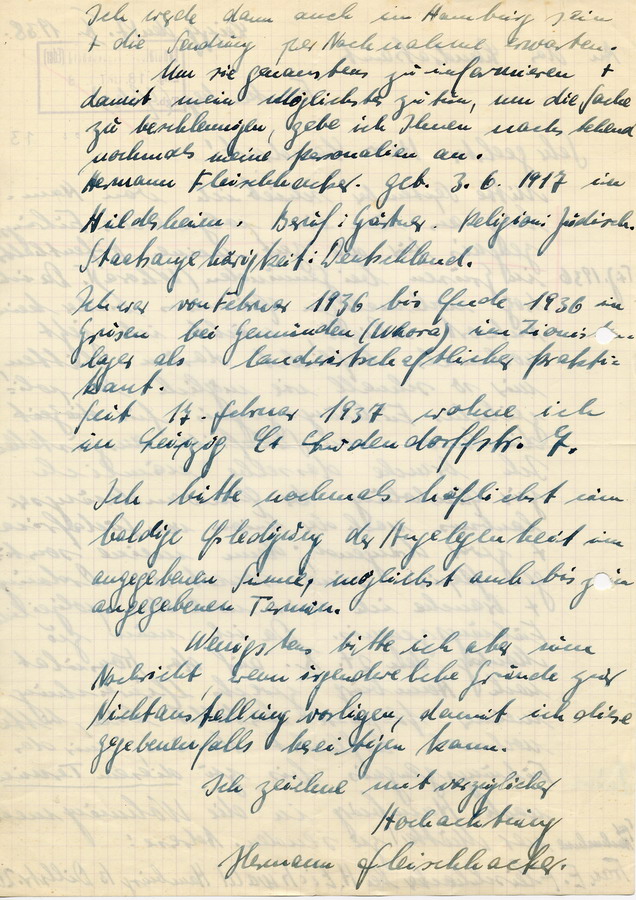 Ich werde dann auch in Hamburg sein
+ die Sendung per Nachnahme erwarten.
Um sie genaustens zu informieren +
damit mein Möglichstes zu tun, um die Sache
zu beschleunigen, gebe ich Ihnen nachstehend
nochmals meine Personalien an.
Hermann Fleischhacker. geb. 3. 6. 1917 in
Hildesheim. Beruf: Gärtner. Religion: Jüdisch.
Staatsangehörigkeit: Deutschland.
Ich war von Februar 1936 bis Ende 1936 in
Grüsen bei Gemünden (Wohra) im
lager als landwirtschaftlicher Prakti-
kant.
Seit 17. Februar 1937 wohne ich
in Leipzig Ludendorffstr. 7.
Ich bitte nochmals höflichst um
baldige Erledigung der Angelegenheit im
angegebenen Sinne, möglichst auch bis zum
angegebenen Termin.
Wenigstens bitte ich aber um
Nachricht, wenn irgendwelche Gründe zur
Nichtausstellung vorligen, damit ich diese
gegebenenfalls beseitigen kann.
Ich zeichne mit vorzüglicher
Hochachtung
Hermann Fleischhacker.